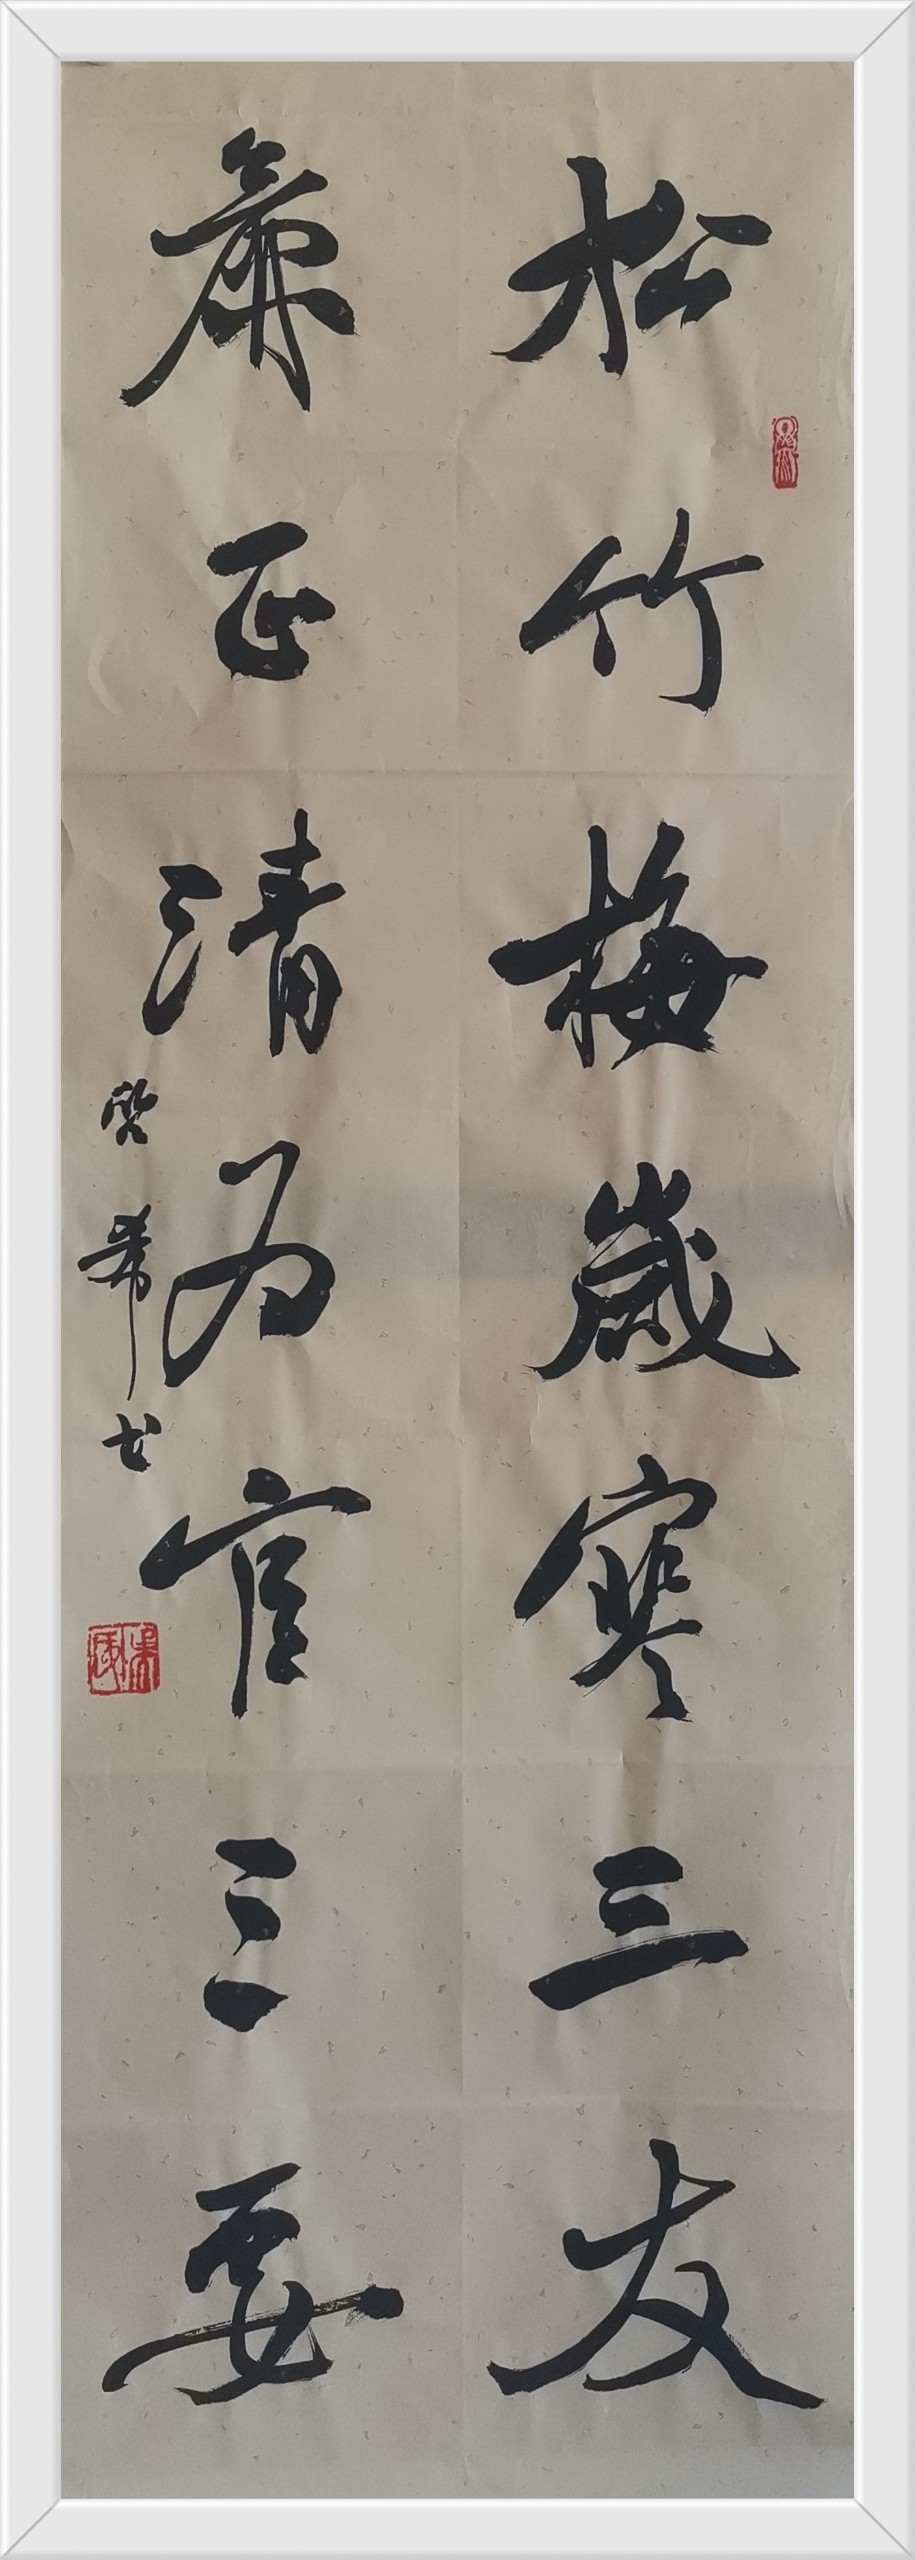 松竹梅歲寒三友
廉正清为官三要